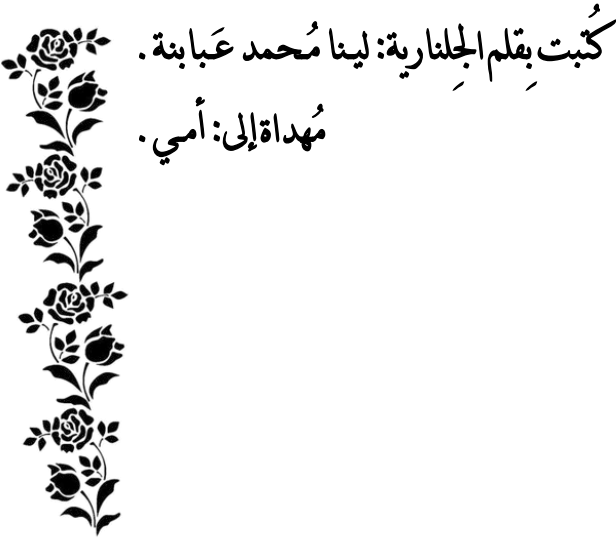 كُتبت بِقلم الجِلنارية: لينا مُحمد عَبابنة .
مُهداة إلى: أمي .